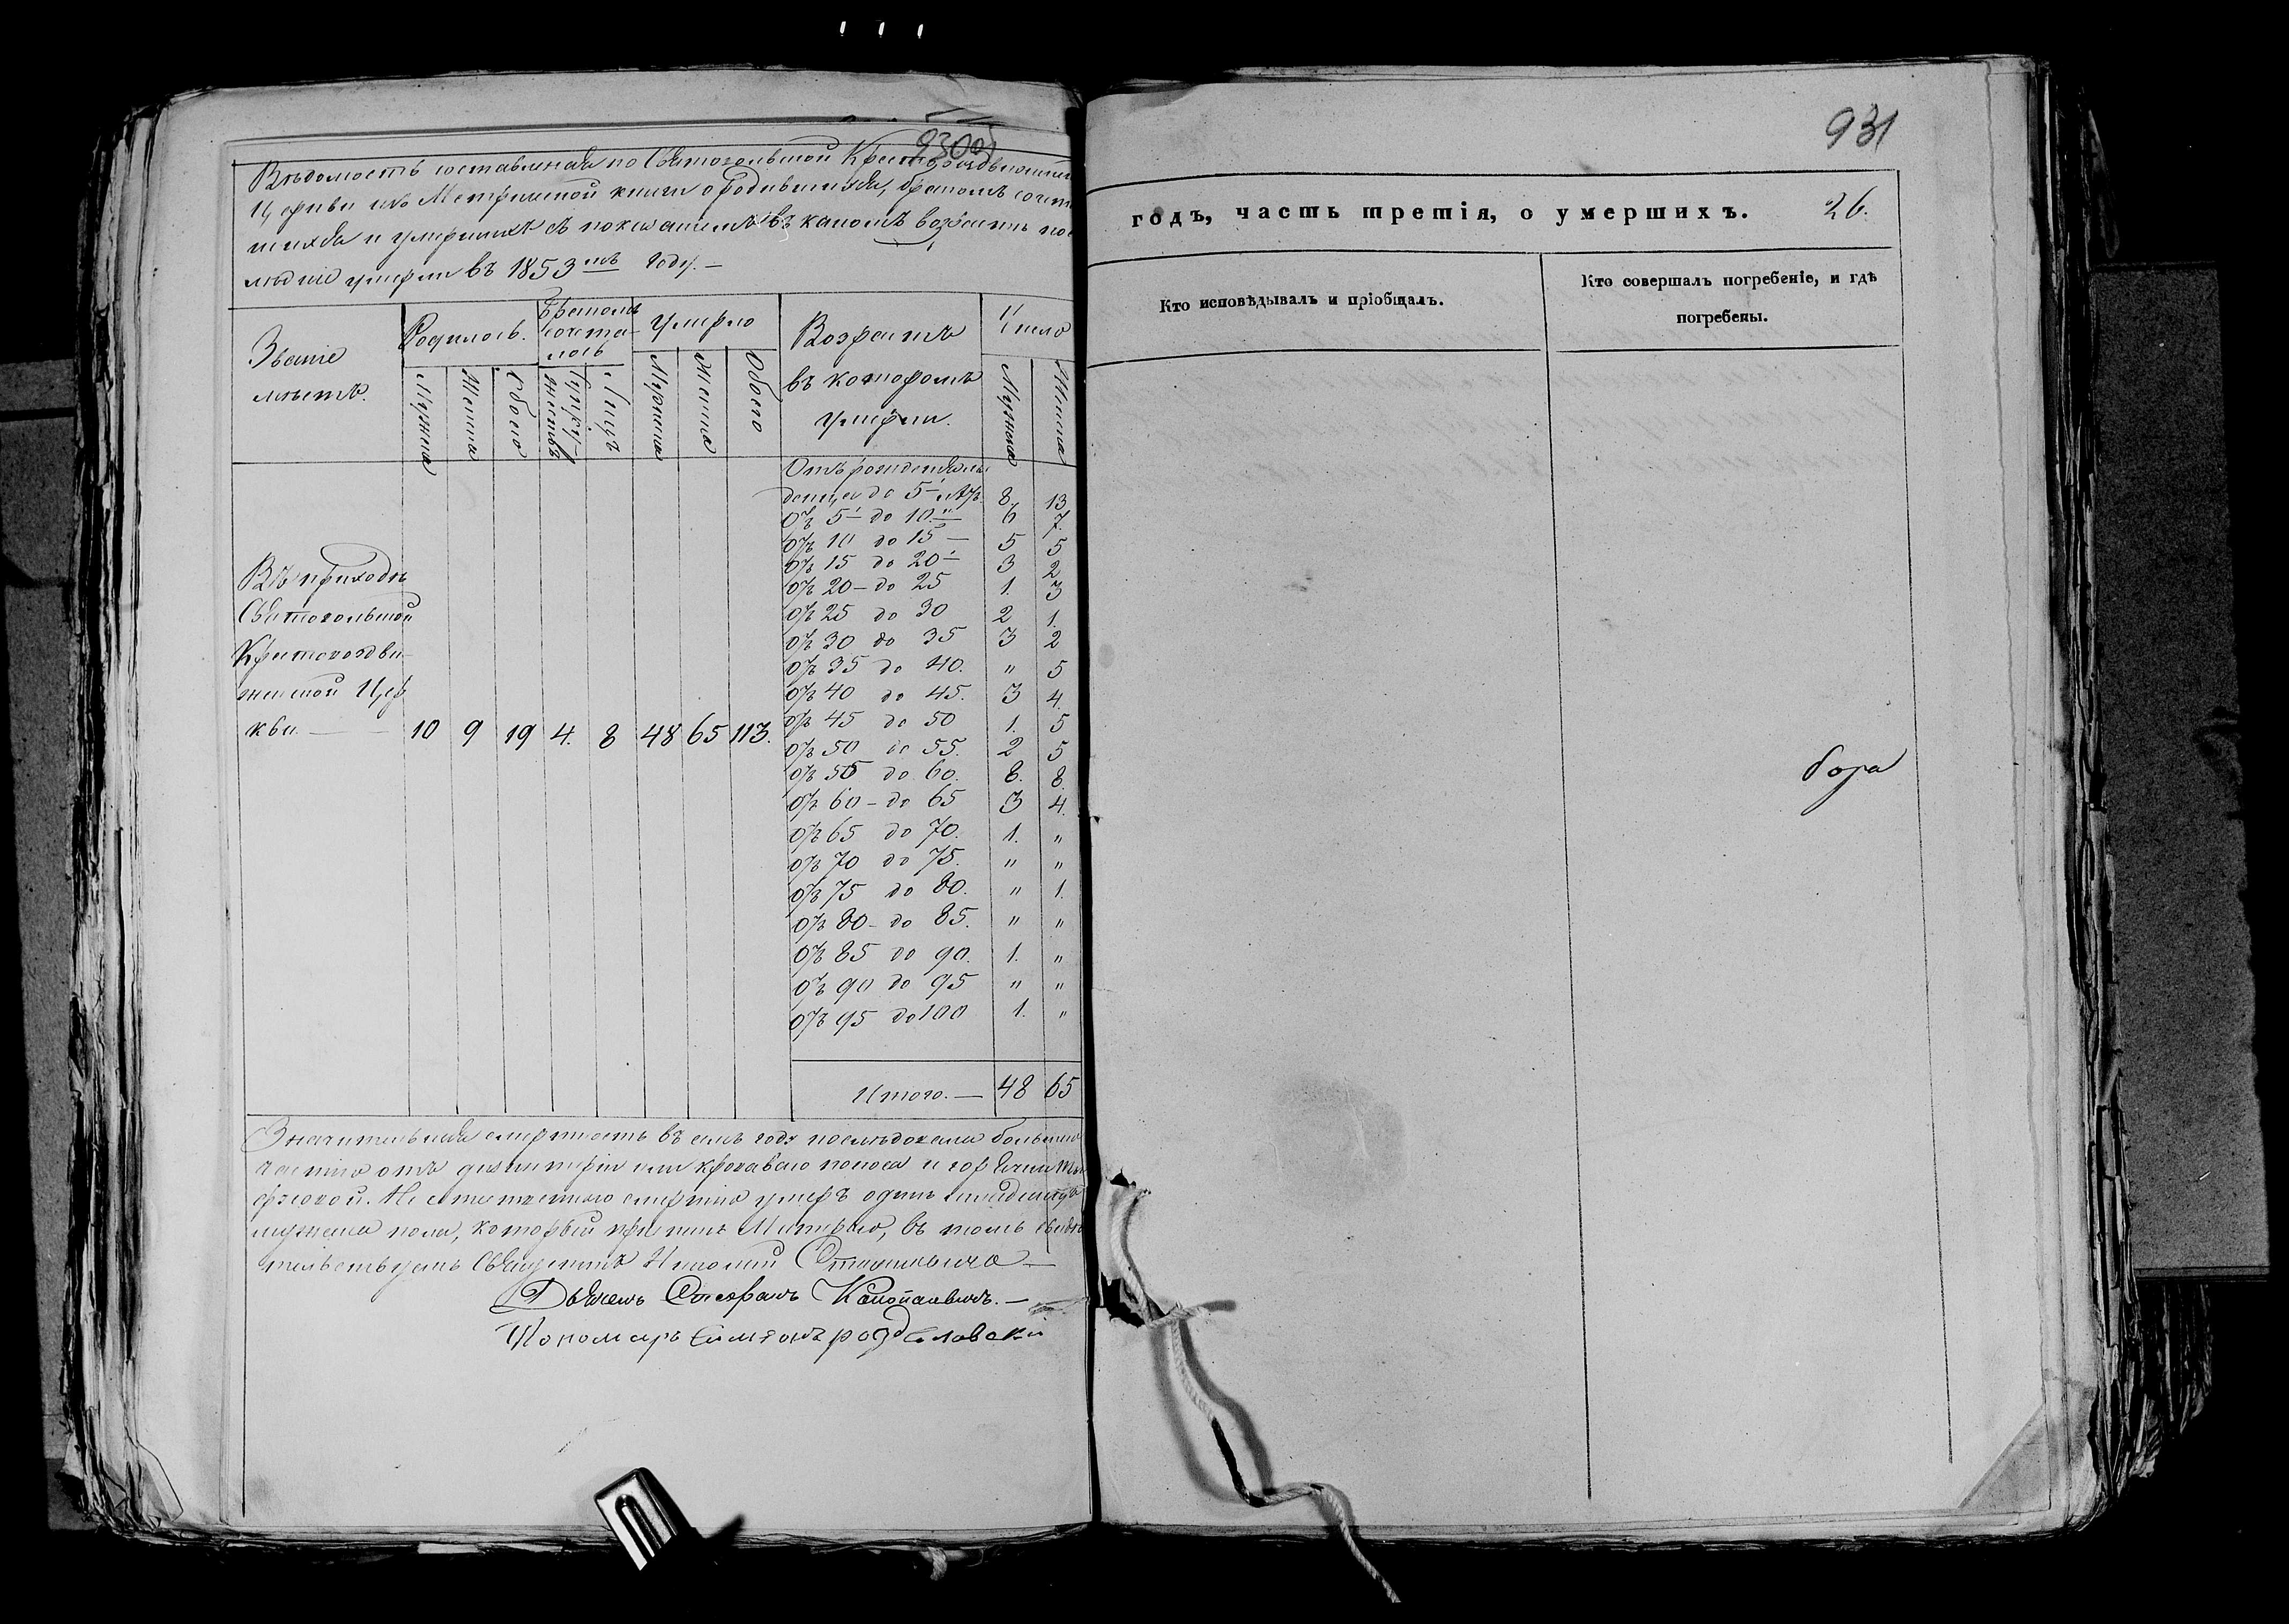 930об
Вѣдомость составленная по Святовольской Крестовоздвиженской
Церкви изъ Метрической книги о родившихся, бракомъ сочетав
шихся и умершихъ съ показаніемъ въ какомъ возрастѣ пос
лѣдніе умерли въ 1853мъ году.—
Званіе мѣстъ.
Родилось.
Бракомъ сочета-лось
Умерло
Возрастъ въ которомъ умерли.
Число
Мужска Женска Обоего Супру-жествъ Лицъ Мужска Женска Обоего Мужска Женска
Отъ рожденія мла
денца до 5 лѣтъ 8. 13
Отъ 5 до 10 " 6 7.
Отъ 10 до 15 — 5 5
Отъ 15 до 20 — 3 2
Отъ 20 – до 25 1. 3
Отъ 25 до 30 2 1.
Отъ 30 до 35 3 2
Отъ 35 до 40. " 5
Отъ 40 до 45. 3 4.
Отъ 45 до 50 1. 5
Отъ 50 до 55. 2 5
Отъ 55 до 60. 8. 8.
Отъ 60 – до 65 3 4.
Отъ 65 до 70. 1. "
Отъ 70 до 75. " "
Отъ 75 до 80. " 1.
Отъ 80 – до 85. " "
Отъ 85 до 90. 1. "
Отъ 90 до 95 " "
Отъ 95 до 100 1. "
Въ приходѣ
Святовольской
Крестовоздви-
женской Цер
кви. — 10 9 19 4. 8 48 65 113.
Итого. — 48 65
Значительная смертность въ семъ году послѣдовала большею
частію отъ дизентеріи или кроваваго поноса и горячки
Не естественною смертію умеръ одинъ младенецъ
мужска пола, который, въ томъ свидѣ
тельствуемъ Священникъ
Дьячекъ Стефанъ
Пономарь Симеонъ
931
годъ, часть третія, о умершихъ. 26.
Кто исповѣдывалъ и пріобщалъ.
Кто совершалъ погребеніе, и гдѣ
погребены.
бора